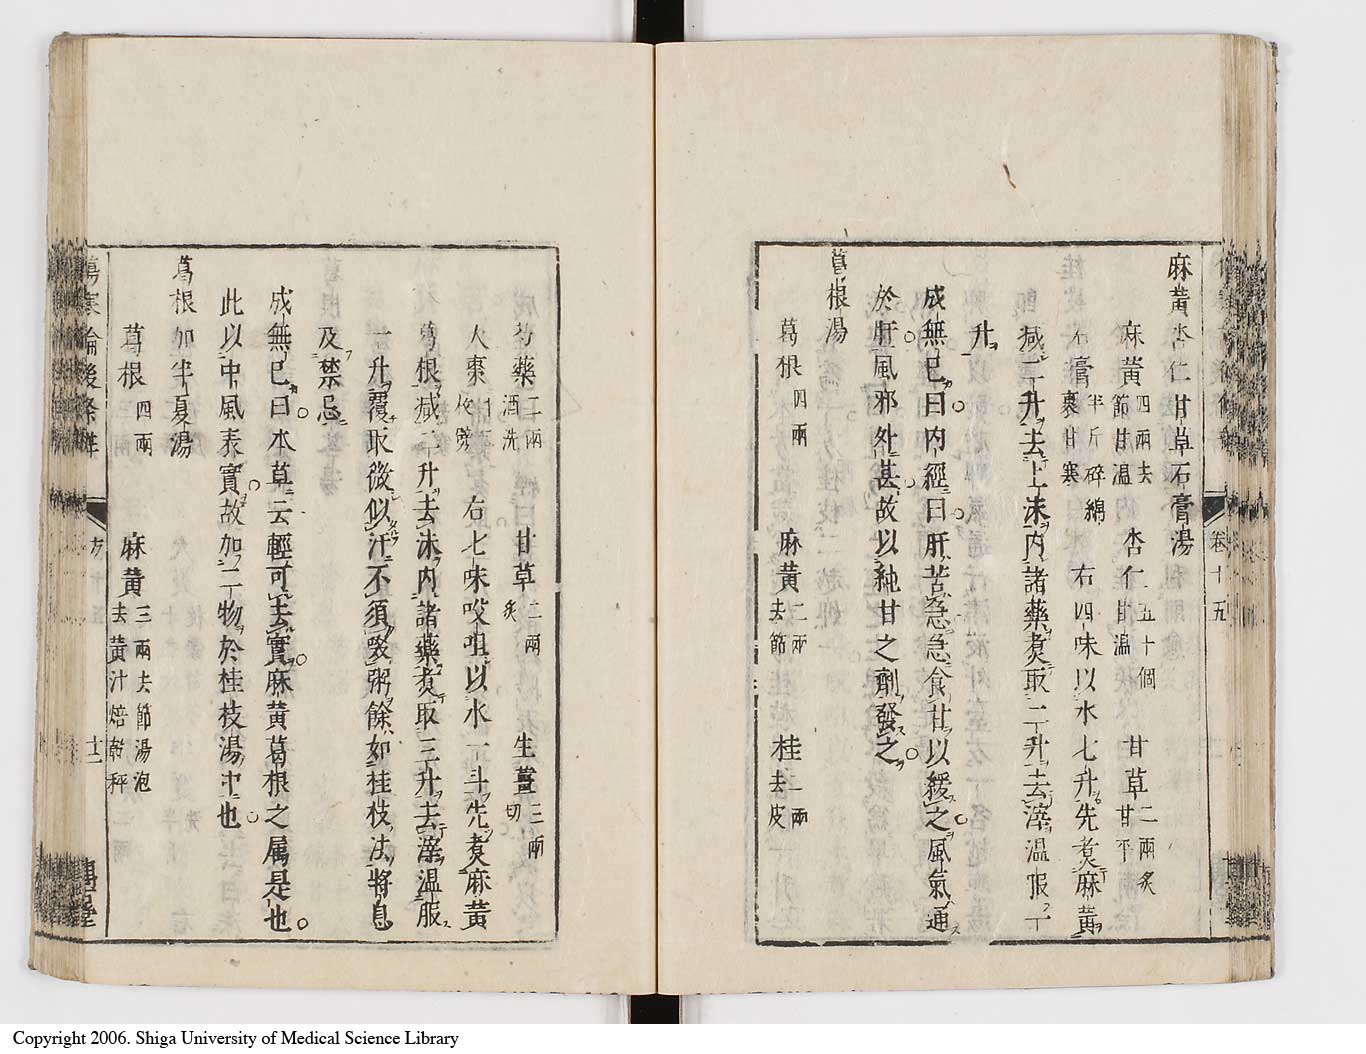 卷十五
麻黃杏仁甘草石膏湯
麻黃 四兩去節甘溫 杏仁 五十個甘溫 甘草 二兩炙甘平
石膏 半斤碎綿裹甘寒 右四味以水七升先煮麻黃
減二升去上沫內諸藥煮取二升去滓溫服一
升
成無已曰內經曰肝苦急急食甘以緩之風氣通
於肝風邪外甚故以純甘之劑發之
葛根湯
葛根 四兩 麻黃 二兩去節 桂 二兩去皮
芍藥 二兩酒洗 甘草 二兩炙 生薑 三兩切
大棗 右七味㕮咀以水一斗先煮麻黃
葛根減二升去沫內諸藥煮取三升去滓溫服
一升覆取微似汗不須啜粥餘如桂枝法將息
及禁忌
成無已曰本草云輕可去實麻黃葛根之属是也
此以中風表實故加二物於桂枝湯中也
葛根加半夏湯
葛根 四兩 麻黃 三兩去節湯泡去黃汁焙乾秤
傷寒論後條辨
Copyright 2006. Shiga University of Medical Science Library